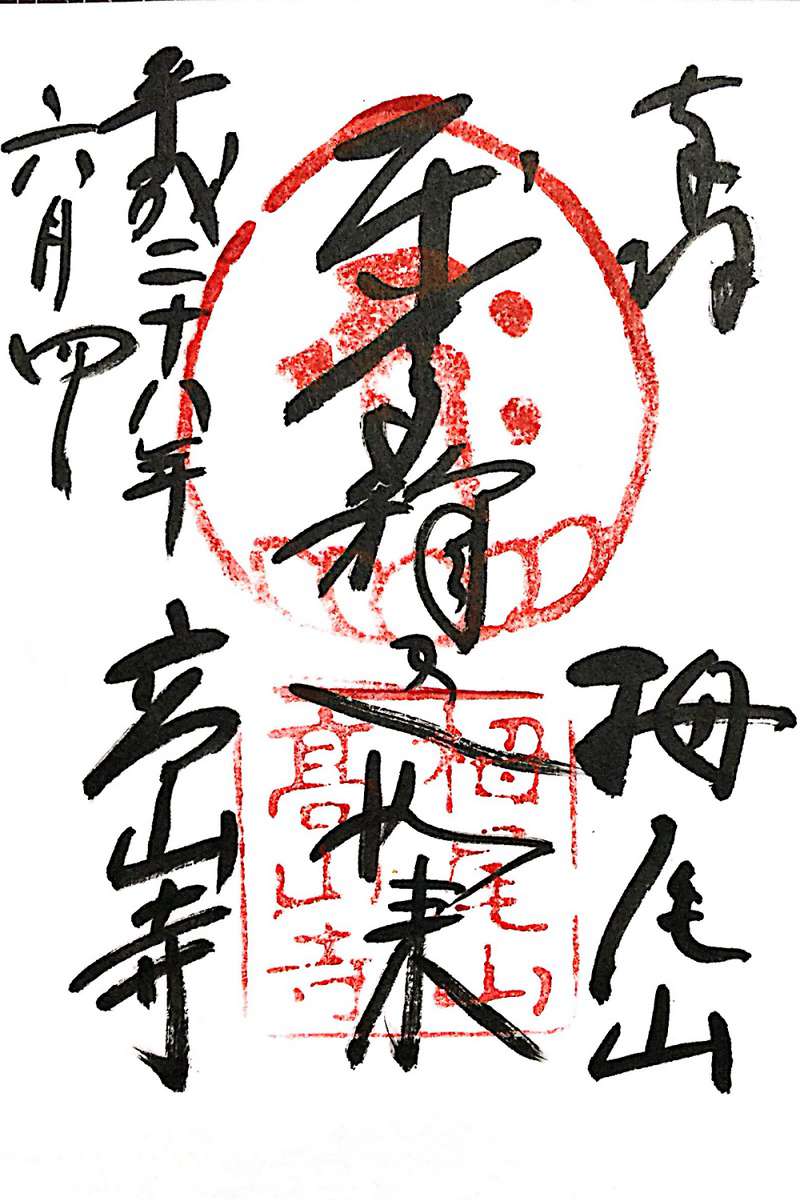 栂尾山
釋迦如来
平成二十八年
六月四
高山寺
栂尾山
高山寺